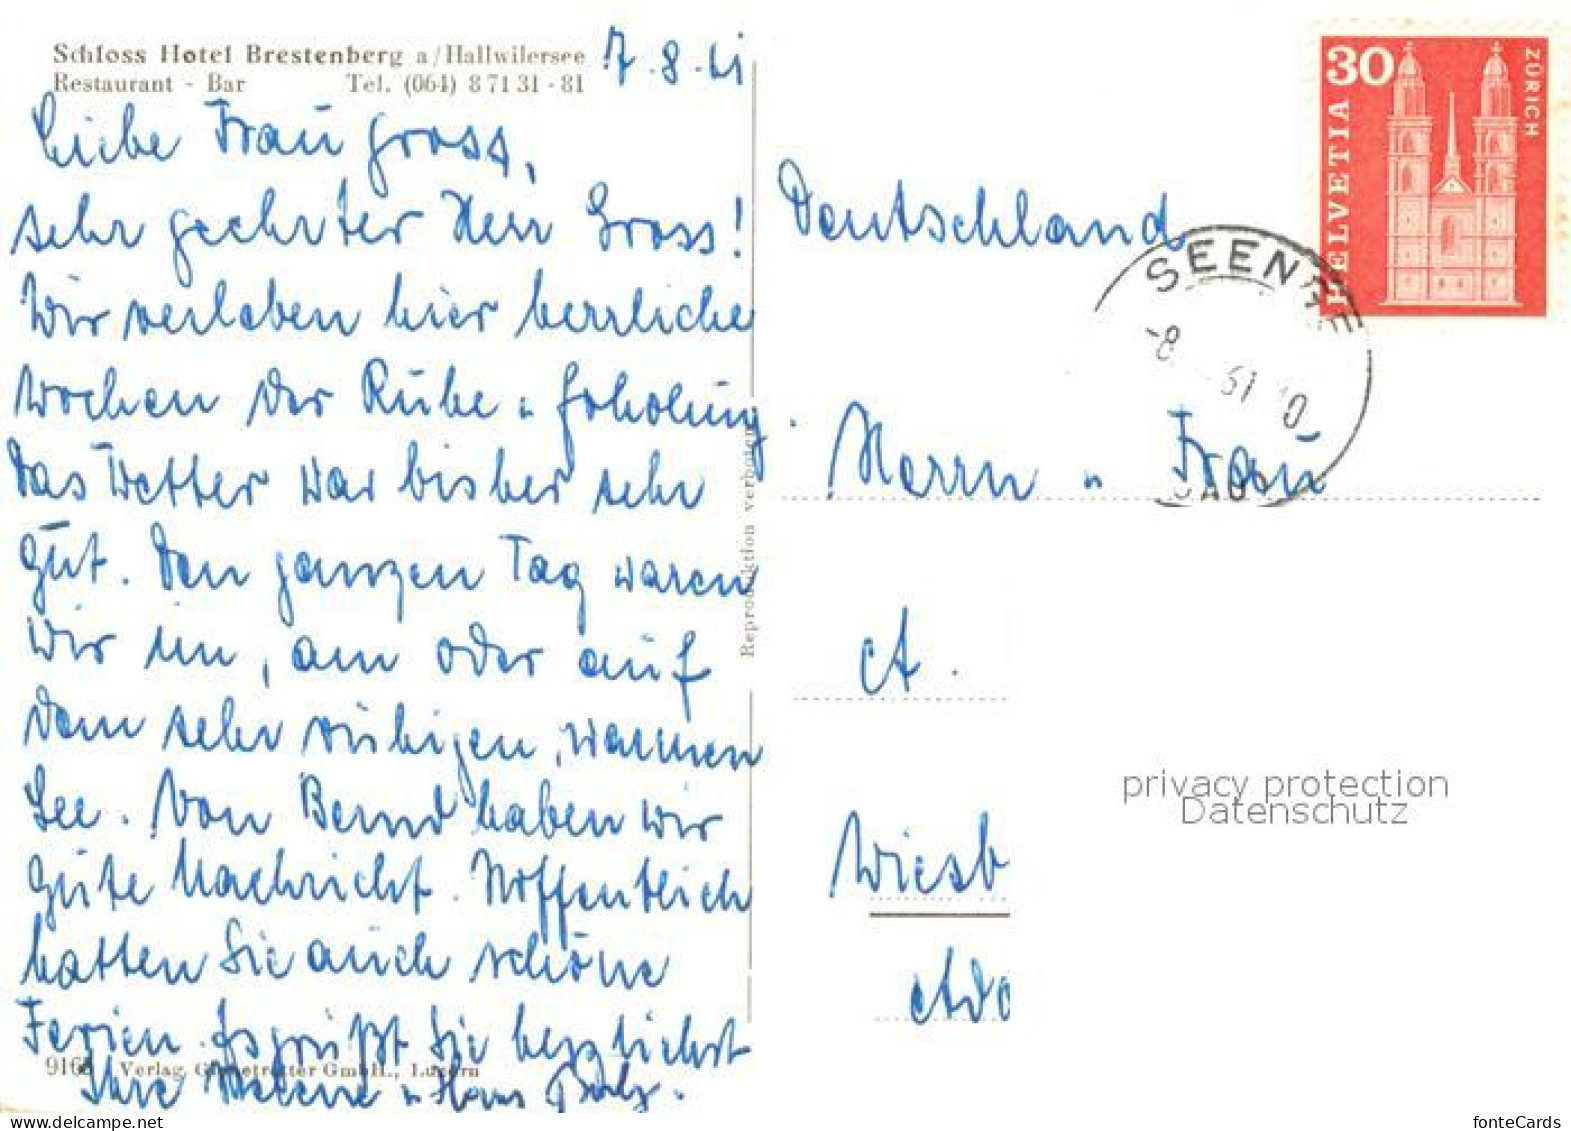 Schloss Hotel Brestenberg a/Hallwilersee
Restaurant - Bar Tel. (064) 8 71 31 - 81
7.8.61
Liebe Frau Gross,
sehr geehrter Herr Gross!
Wir verleben hier herrliche
Wochen der Ruhe u Erholung.
Das Wetter war bisher sehr
gut. Den ganzen Tag waren
wir im, am oder auf
dem sehr ruhigen, warmen
See. Von Bernd haben wir
gute Nachricht. Hoffentlich
hatten Sie auch schöne
Ferien. Es grüßt Sie herzlichst
Ihre u Hans
9165 Verlag Globetrotter GmbH., Luzern
Reproduktion verboten
30
HELVETIA
ZÜRICH
SEENGEN
-8 61 10
Deutschland
Herrn u Frau
A.
Wiesb
Ado
privacy protection
Datenschutz
fonteCards